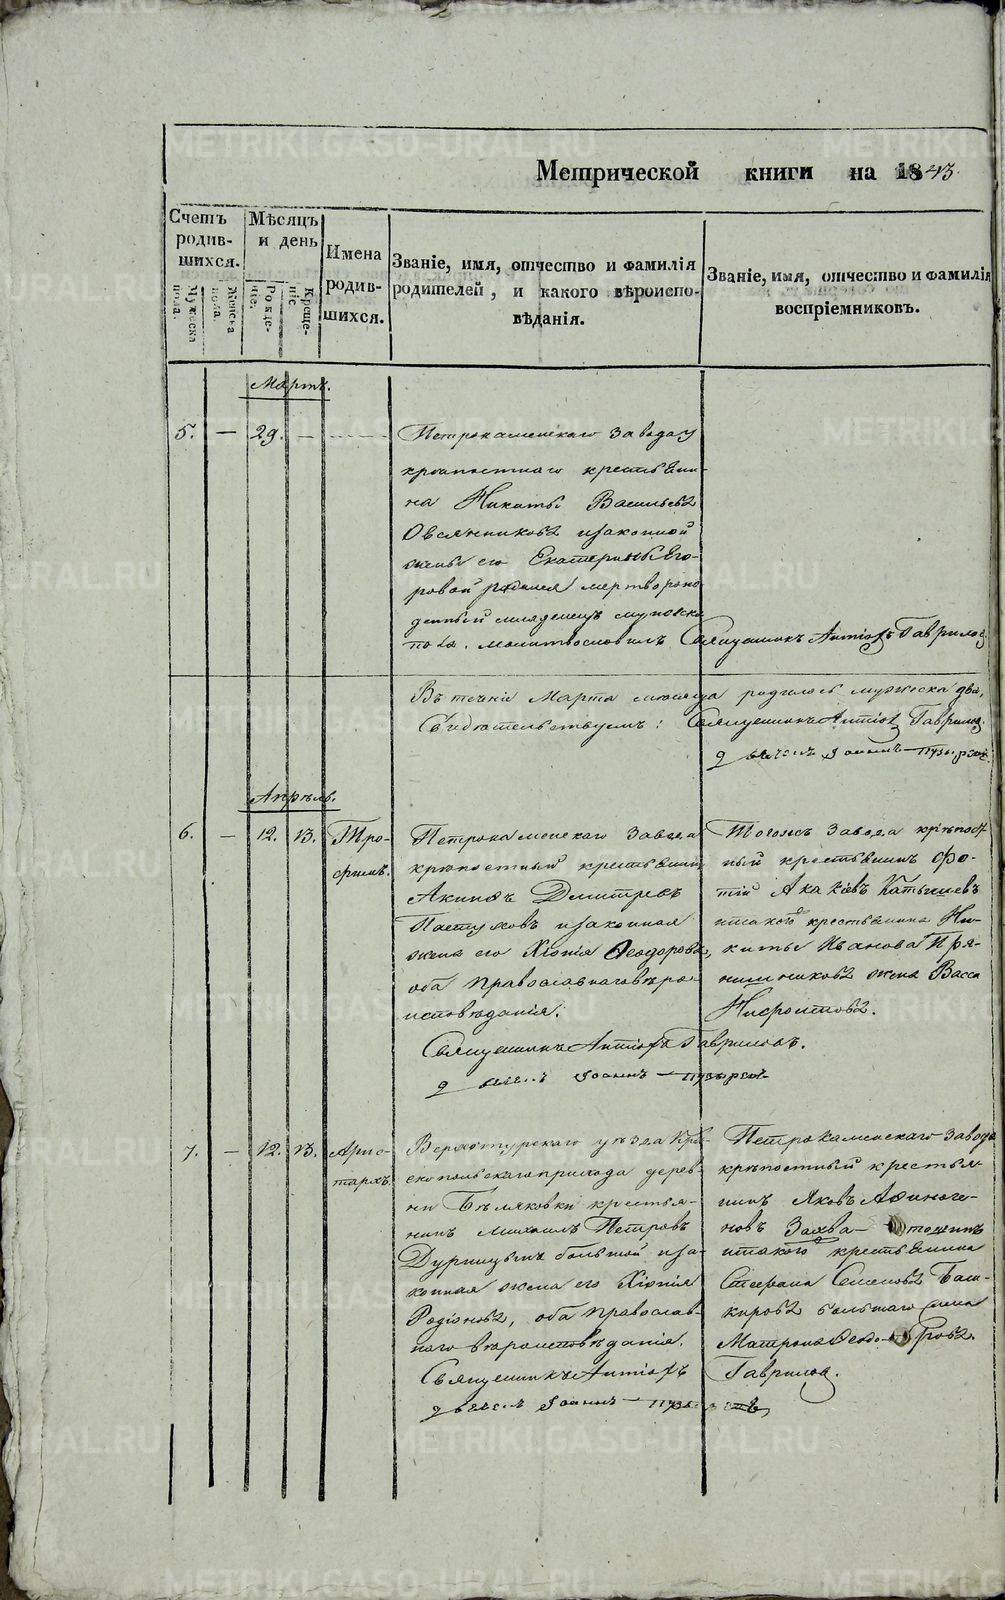 Метрической книги на 1843.
Счетъ родив-шихся.
Мужеска пола.
Женска пола.
Мѣсяцъ и день
Рожде-нія.
Креще-нія
Имена родив-шихся.
Званіе, имя, отчество и фамилія
родителей, и какого вѣроиспо-
вѣданія.
Званіе, имя, отчество и фамилія
воспріемниковъ.
Мартъ.
5. — 29. —
Петрокаменскаго завода
крѣпостнаго крестьяни-
на Никиты Васильева
Овсянникова и законной
жены его Екатерины Его-
ровой родился мертворож-
денный младенецъ мужска
пола. молитвословилъ Священникъ Антіохъ Гавриловъ
Въ теченіе Марта мѣсяца родилось мужеска два,
Свидѣтельствуемъ: Священникъ Антіохъ Гавриловъ.
Іоаннъ
Апрѣль.
6. — 12. 13. Тро-
фимъ.
Петрокаменскаго завода
крѣпостный крестьянинъ
Акинфъ Дмитріевъ
Пастуховъ и законная
жена его Хіонія Ѳеодорова,
оба православнаго вѣро-
исповѣданія.
Тогоже завода крѣпост-
ный крестьянинъ Фо-
тій Акакіевъ
и такого крестьянина Ни-
киты Иванова Пря-
нишникова жена Васса
Нифонтова.
Священникъ Антіохъ Гавриловъ.
Іоаннъ
7. — 12. 13. Арис-
тархъ.
Верхотурскаго уѣзда Кра-
снопольскаго прихода дерев-
ни Бѣляковки крестья-
нинъ Михаилъ Петровъ
Дурницынъ большой и за-
конная жена его Хіонія
Родіонова, оба православ-
наго вѣроисповѣданія.
Петрокаменскаго завода
крѣпостный крестья-
нинъ Яковъ Афиноге-
новъ
и такого крестьянина
Стефана Семенова Баш-
кирова большаго жена
Матрона Ѳеодорова.
Священникъ Антіохъ Гавриловъ.
Іоаннъ
METRIKI.GASO-URAL.RU